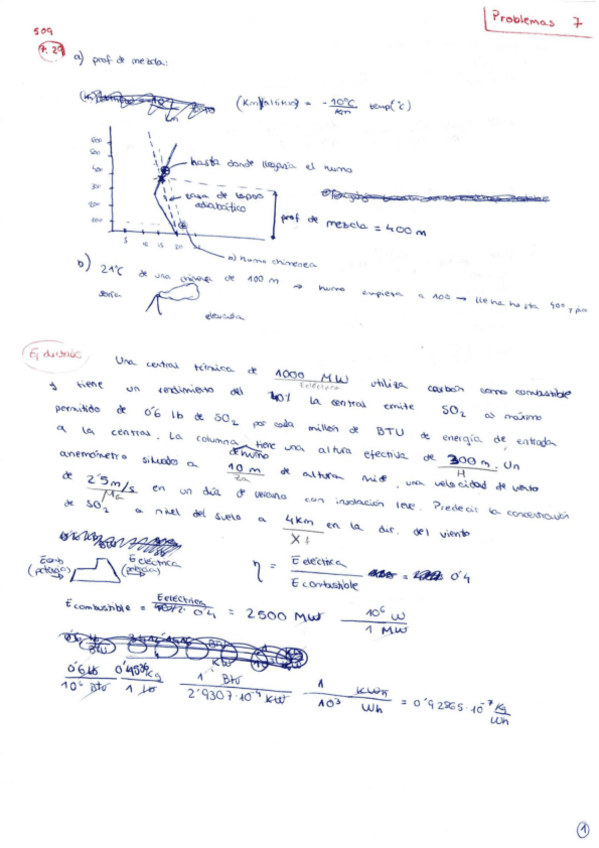 Problemas 7
509
7.27
a) prof de mezcla:
(Km)(altitud) = - 10°C / Km temp(°C)
600
500
400
300
200
100
5 10 15 20
hasta donde llegaría el humo
tasa de lapso adiabático
prof de mezcla = 400 m
a) humo chimenea
b) 21°C de una chimenea de 100 m → humo empieza a 100 → llega hasta 400 y pico
sería
elevada
Ej de clase
Una central térmica de 1000 MW utiliza carbón como combustible
Eeléctrica
y tiene un rendimiento del 40% la central emite SO2 al máximo
permitido de 0'6 lb de SO2 por cada millón de BTU de energía de entrada
a la central. La columna de humo tiene una altura efectiva de 300 m. Un
H
anemómetro situado a 10 m de altura mide una velocidad de viento
za
de 2'5 m/s en un día de verano con insolación leve. Predecir la concentración
de SO2 a nivel del suelo a 4 Km en la dir. del viento
X
(potencia) E eléctrica (potencia)
η = E eléctrica / E combustible = 0'4
E combustible = E eléctrica / 0'4 = 2500 MW 10⁶ W / 1 MW
0'6 lb / 10⁶ Btu 0'4536 Kg / 1 lb 1 Btu / 2'9307·10⁻⁴ KW 1 KWh / 10³ Wh = 0'92865·10⁻⁷ Kg / Wh
1